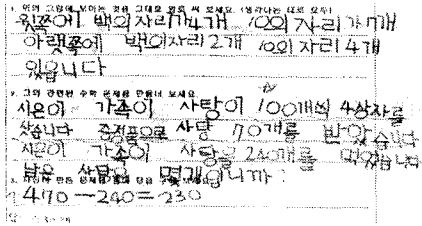 1. 위의 그림에 보이는 것을 그대로 말로 써 보세요. (생각나는 대로 모두)
윗쪽에 백의자리가 4개 10의 자리가 7개
아랫쪽에 백의자리 2개 10의 자리 4개
있읍니다
2. 그와 관련된 수학 문제를 만들어 보세요.
시은이 가족이 사탕이 100개씩 4상자를
샀습니다 증정품으로 사탕 70개를 받았습니다
시은이 가족이 사탕을 240개를 먹었습니다
남은 사탕은 몇개입니까?
3. 자신이 만든 문제를 풀고 답을 보세요.
470-240=230
답: 230개